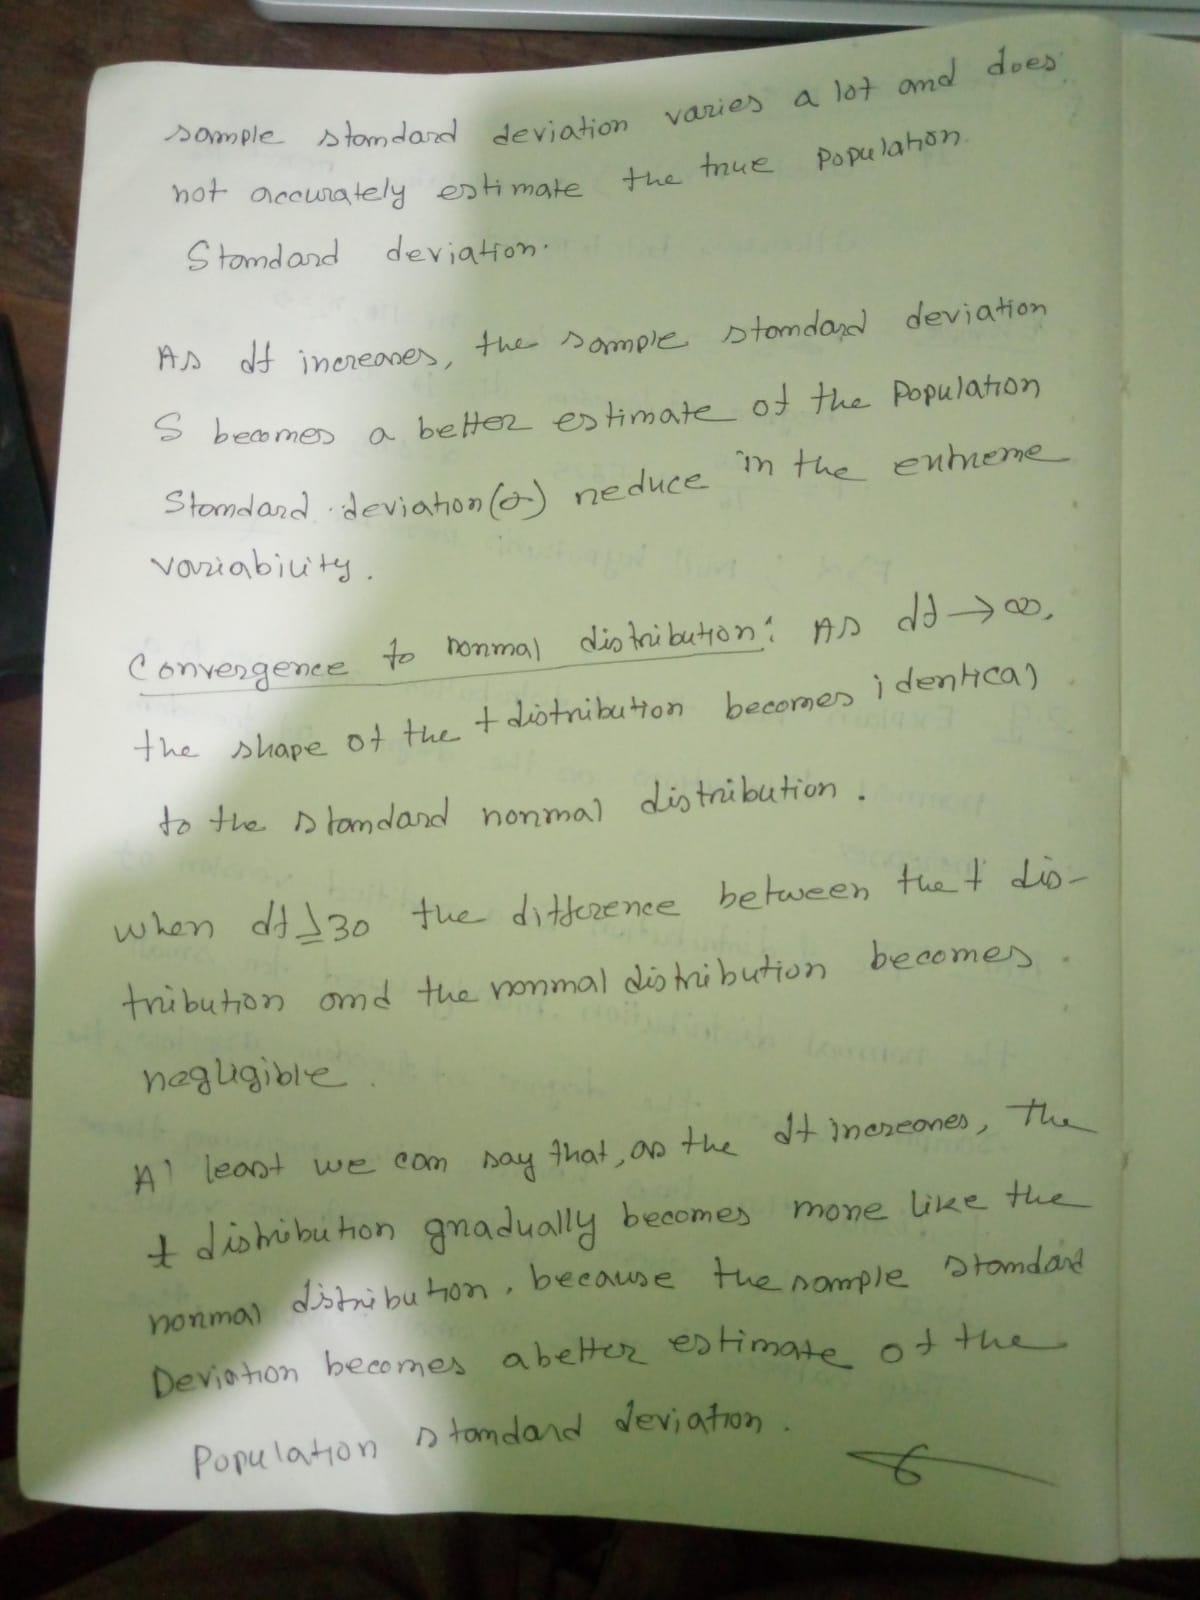 sample standard deviation varies a lot and does
not accurately estimate the true population.
Standard deviation.
As df increases, the sample standard deviation
S becomes a better estimate of the Population
Standard deviation (σ) reduce in the extreme
variability.
Convergence to normal distribution: As df → ∞,
the shape of the t distribution becomes identical
to the standard normal distribution.
when df ≥ 30 the difference between the t dis-
tribution and the normal distribution becomes
negligible.
At least we can say that, as the df increases, The
t distribution gradually becomes more like the
normal distribution, because the sample standard
Deviation becomes a better estimate of the
Population standard deviation.